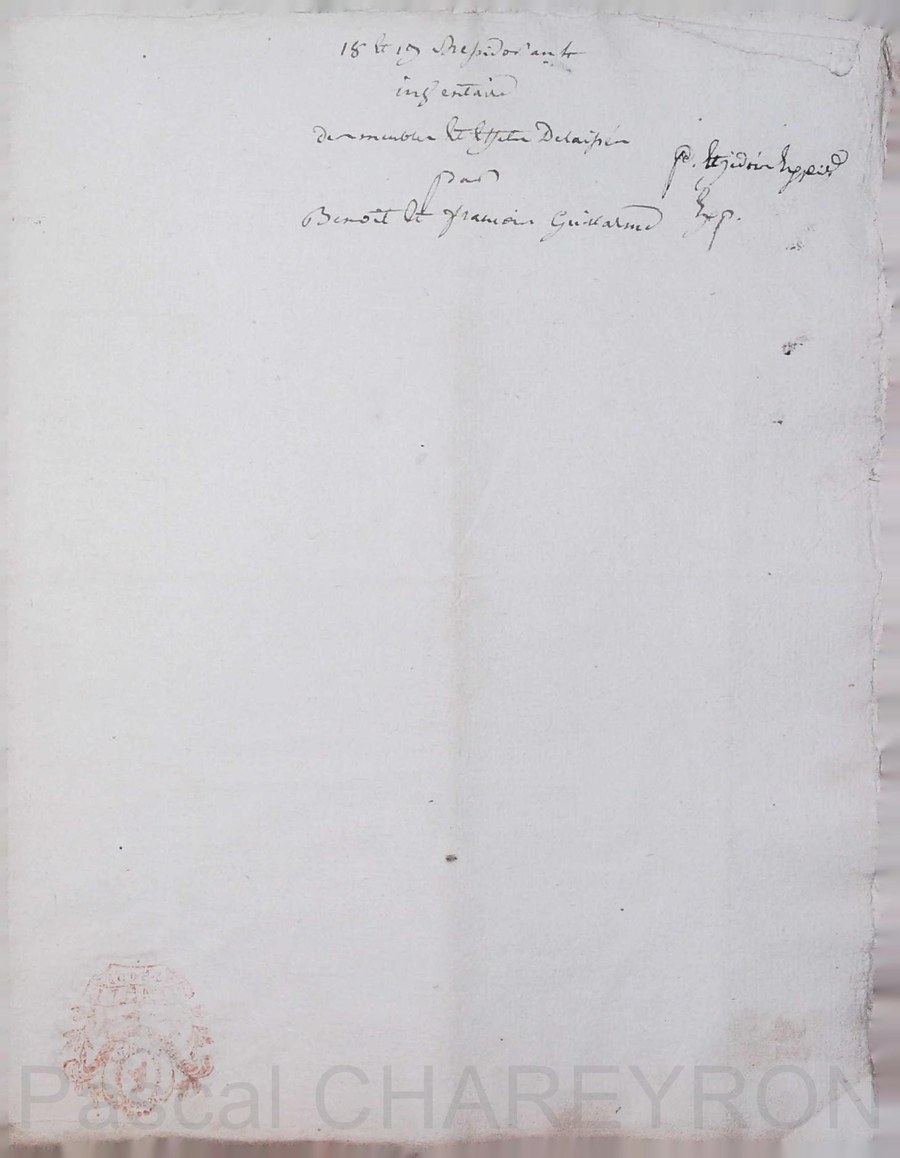 18 et 19 Messidor an 4
inventaire
Des meubles Et Effets Delaissés
par
Benoit Et francois Guillarme
Exp.
Pascal CHAREYRON